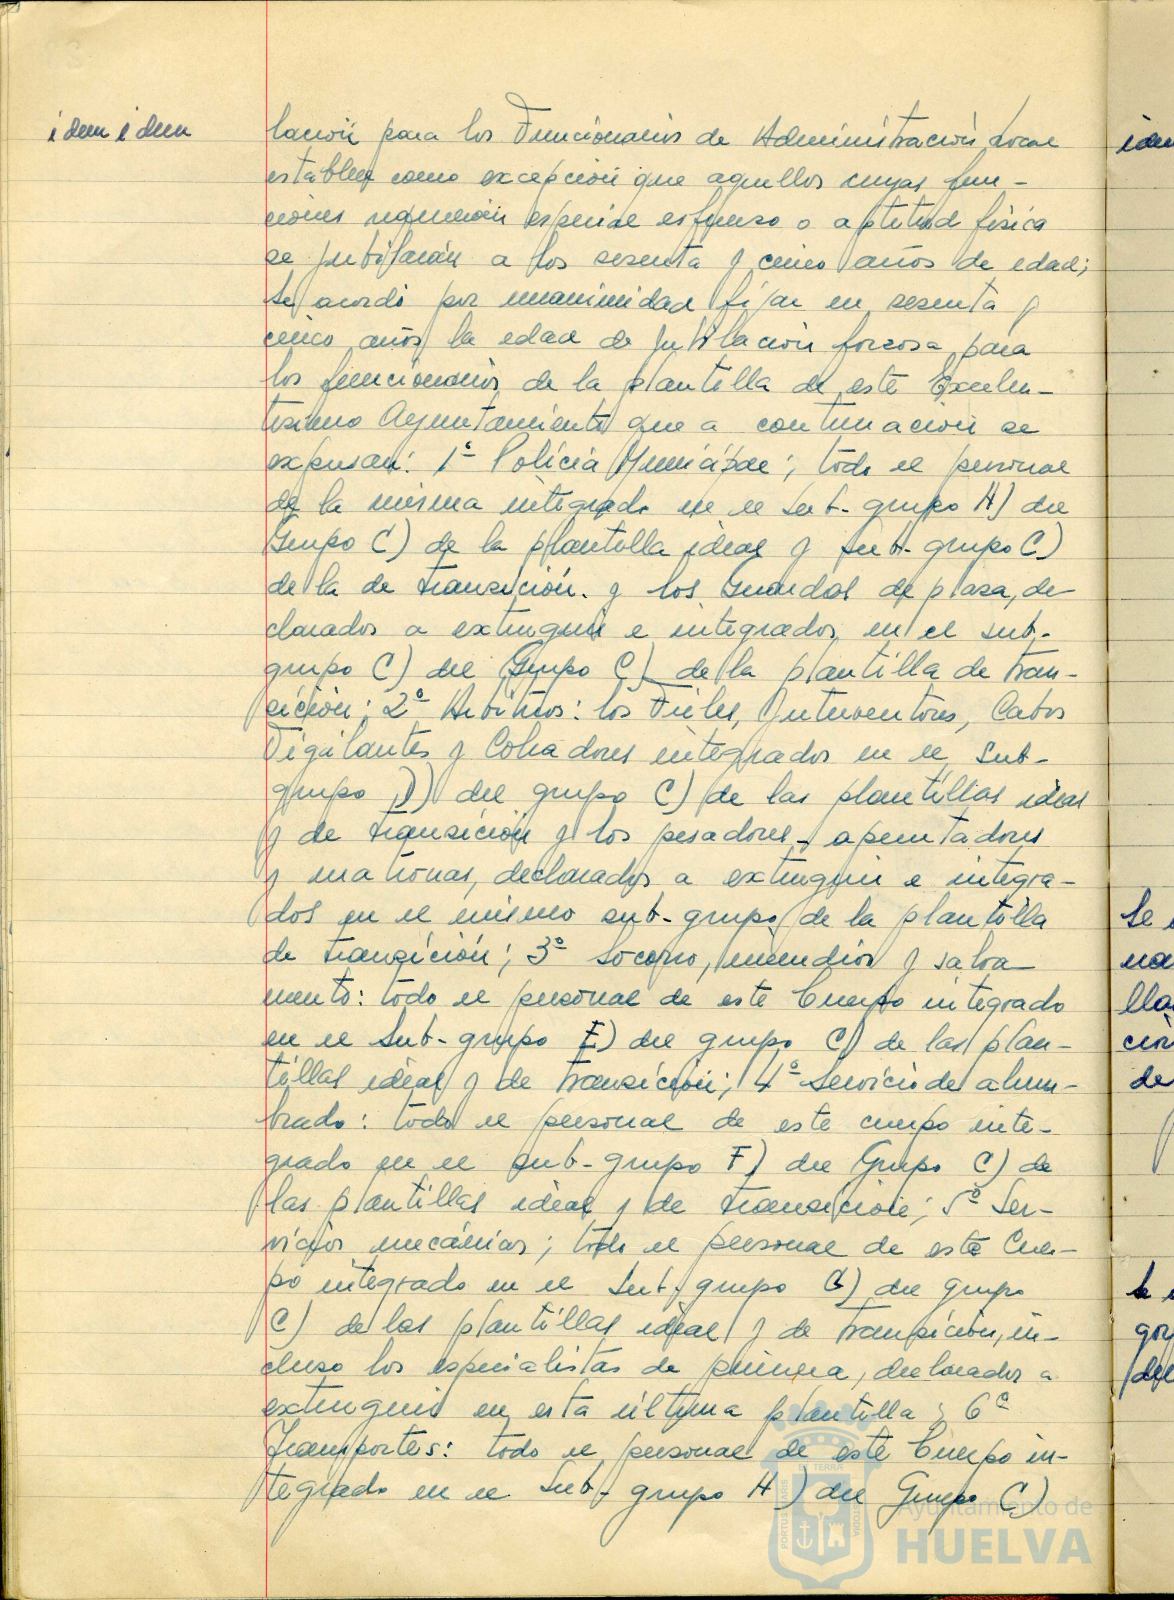 idem idem
lación para los Funcionarios de Administración Local
establece como excepción que aquellos cuyas fun-
ciones requieran especial esfuerzo o aptitud física
se jubilarán a los sesenta y cinco años de edad;
se acordó por unanimidad fijar en sesenta y
cinco años la edad de jubilación forzosa para
los funcionarios de la plantilla de este Excelen-
tísimo Ayuntamiento que a continuación se
expresan: 1º Policía Municipal; todo el personal
de la misma integrado en el sub-grupo A) del
Grupo C) de la plantilla ideal y sub-grupo C)
de la de transición. y los Guardas de plaza, de-
clarados a extinguir e integrados en el sub-
grupo C) del Grupo C) de la plantilla de tran-
sición; 2º Arbitrios: los Fieles, Interventores, Cabos
Vigilantes y Cobradores integrados en el Sub-
grupo D) del grupo C) de las plantillas ideal
y de transición y los pesadores-apuntadores
y matronas, declarados a extinguir e integra-
dos en el mismo sub-grupo de la plantilla
de transición; 3º Socorro, incendios y salva-
mento: todo el personal de este Cuerpo integrado
en el Sub-grupo E) del grupo C) de las plan-
tillas ideal y de transición; 4º Servicio de alum-
brado: todo el personal de este cuerpo inte-
grado en el sub-grupo F) del Grupo C) de
las plantillas ideal y de transición; 5º Ser-
vicios mecánicos; todo el personal de este Cuer-
po integrado en el Sub-grupo G) del grupo
C) de las plantillas ideal y de transición, in-
cluso los especialistas de primera, declarados a
extinguir en esta última plantilla; 6º
Transportes: todo el personal de este Cuerpo in-
tegrado en el Sub-grupo H) del Grupo C)
Ayuntamiento de
HUELVA